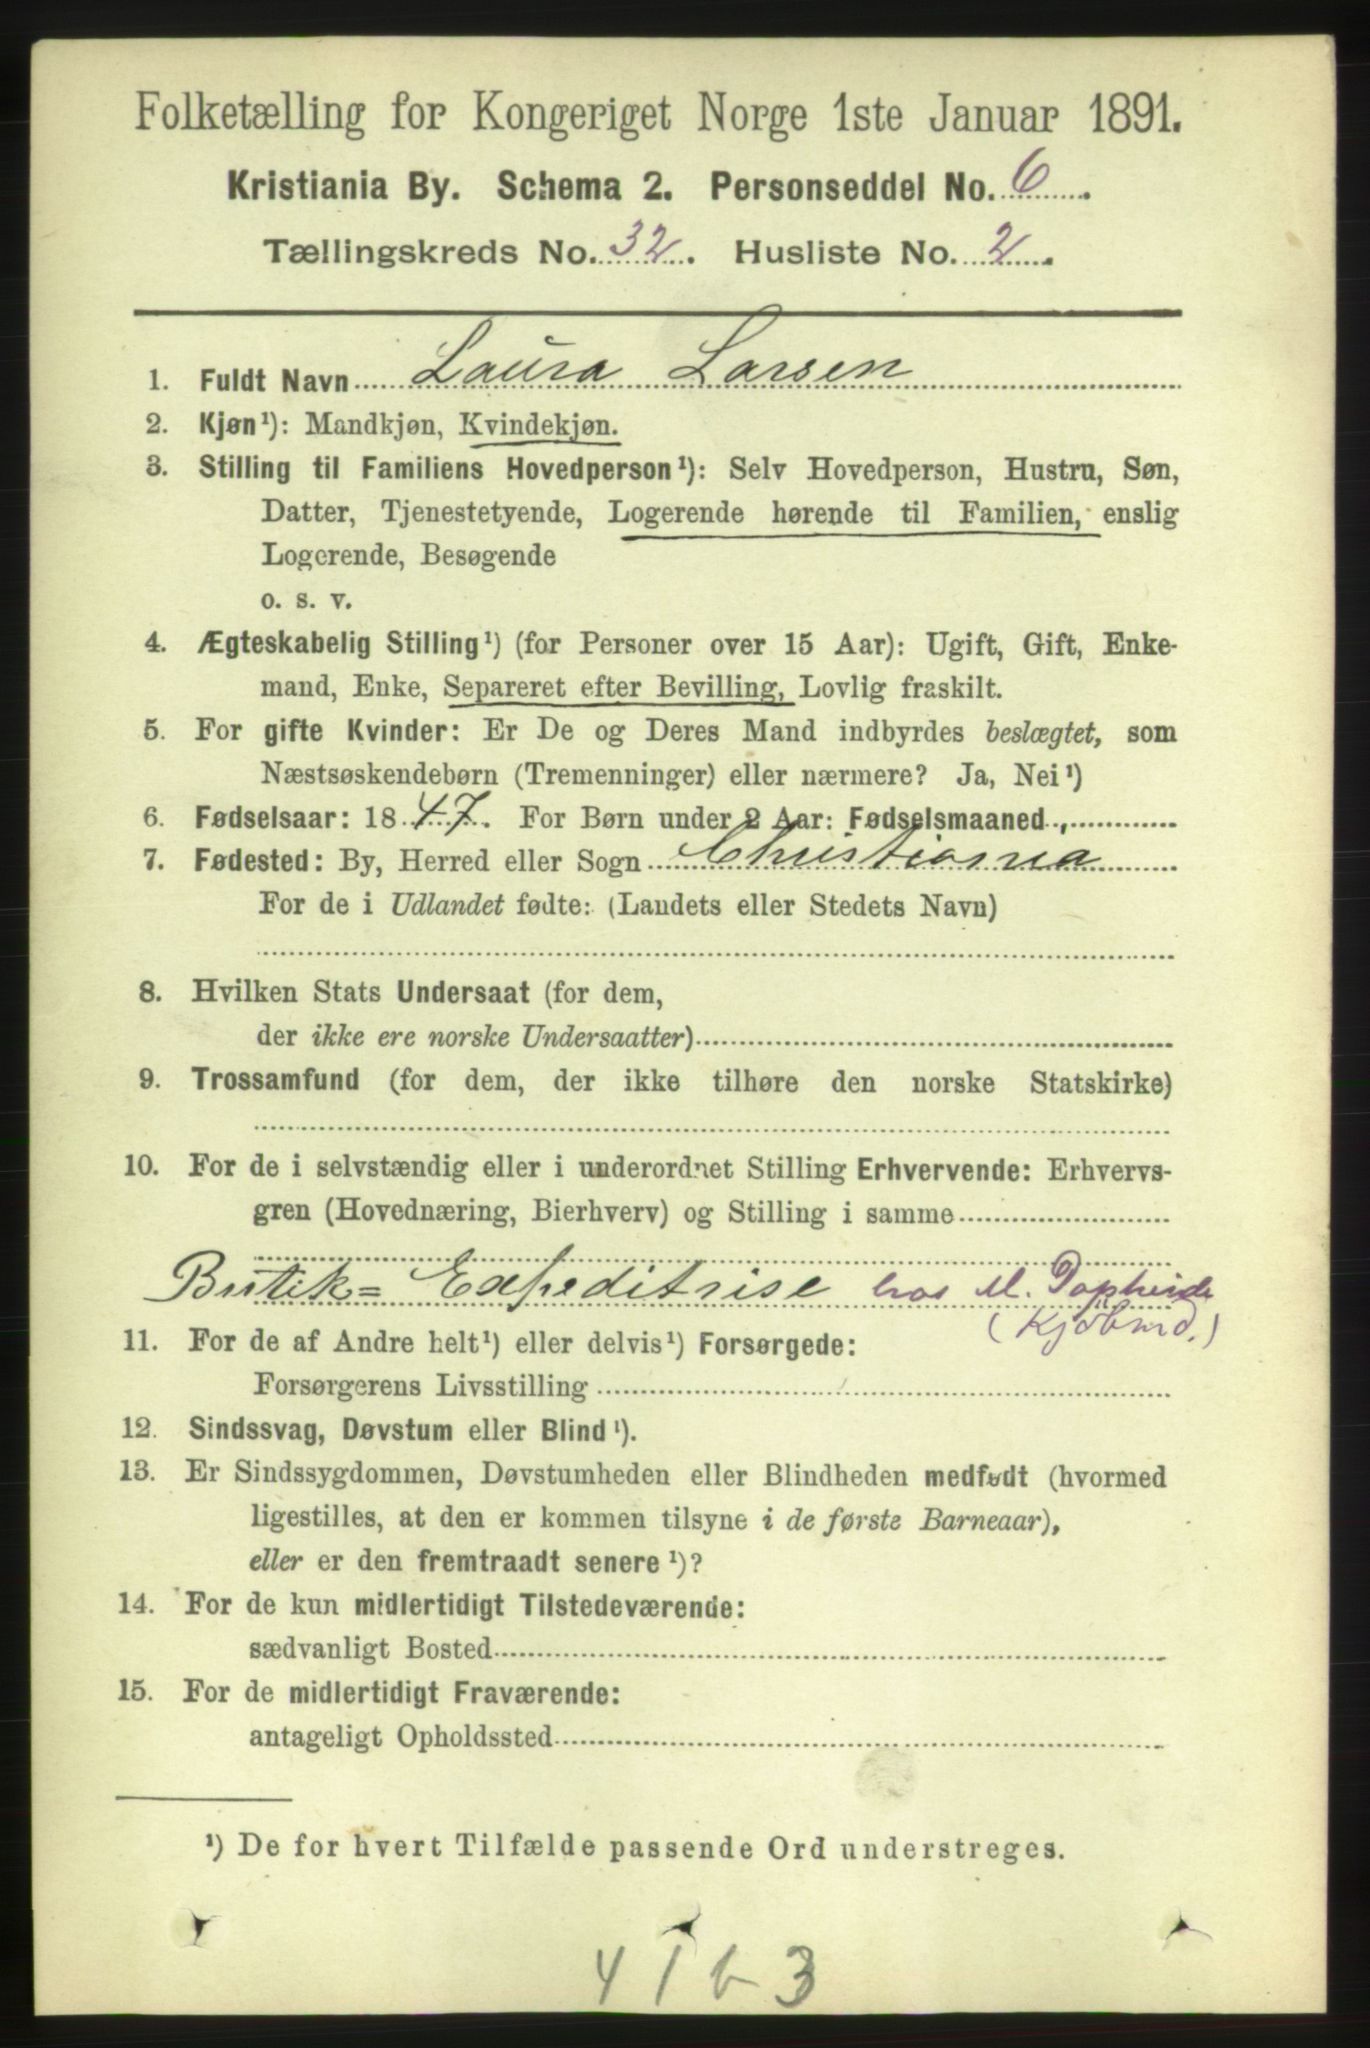 Folketælling for Kongeriget Norge 1ste Januar 1891.
Kristiania By. Schema 2. Personseddel No. 6.
Tællingskreds No. 32. Husliste No. 2.
1. Fuldt Navn Laura Larsen
2. Kjøn¹): Mandkjøn, Kvindekjøn.
3. Stilling til Familiens Hovedperson¹): Selv Hovedperson, Hustru, Søn,
Datter, Tjenestetyende, Logerende hørende til Familien, enslig
Logerende, Besøgende
o. s. v.
4. Ægteskabelig Stilling¹) (for Personer over 15 Aar): Ugift, Gift, Enke-
mand, Enke, Separeret efter Bevilling, Lovlig fraskilt.
5. For gifte Kvinder: Er De og Deres Mand indbyrdes beslægtet, som
Næstsøskendebørn (Tremenninger) eller nærmere? Ja, Nei¹)
6. Fødselsaar: 1847. For Børn under 2 Aar: Fødselsmaaned
7. Fødested: By, Herred eller Sogn Christiania
For de i Udlandet fødte: (Landets eller Stedets Navn)
8. Hvilken Stats Undersaat (for dem,
der ikke ere norske Undersaatter)
9. Trossamfund (for dem, der ikke tilhøre den norske Statskirke)
10. For de i selvstændig eller i underordnet Stilling Erhvervende: Erhvervs-
gren (Hovednæring, Bierhverv) og Stilling i samme
Butik= Expeditrise hos M.
(Kjöbmd.)
11. For de af Andre helt¹) eller delvis¹) Forsørgede:
Forsørgerens Livsstilling
12. Sindssvag, Døvstum eller Blind¹).
13. Er Sindssygdommen, Døvstumheden eller Blindheden medfødt (hvormed
ligestilles, at den er kommen tilsyne i de første Barneaar),
eller er den fremtraadt senere¹)?
14. For de kun midlertidigt Tilstedeværende:
sædvanligt Bosted
15. For de midlertidigt Fraværende:
antageligt Opholdssted
¹) De for hvert Tilfælde passende Ord understreges.